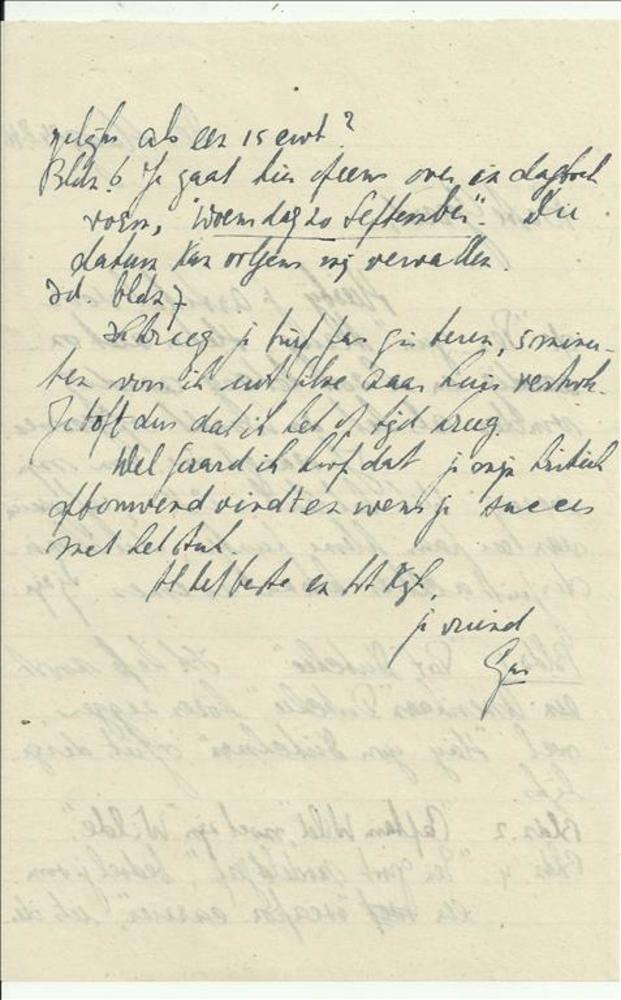 als een 15 cwt?
Bldz. 6 Je gaat hier opeens over in dagboek
vorm, "Woensdag 20 September". Die
datum kan volgens mij vervallen.
Id. bldz 7
Ik kreeg je brief pas gisteren, 5 minu-
ten voor ik uit naar huis vertrok.
Je boft dus dat ik het op tijd kreeg.
Wel Gaard ik hoop dat je mijn kritiek
opbouwend vindt en wens je succes
met het stuk.
Al het beste en tot kijk,
je vriend
Gus